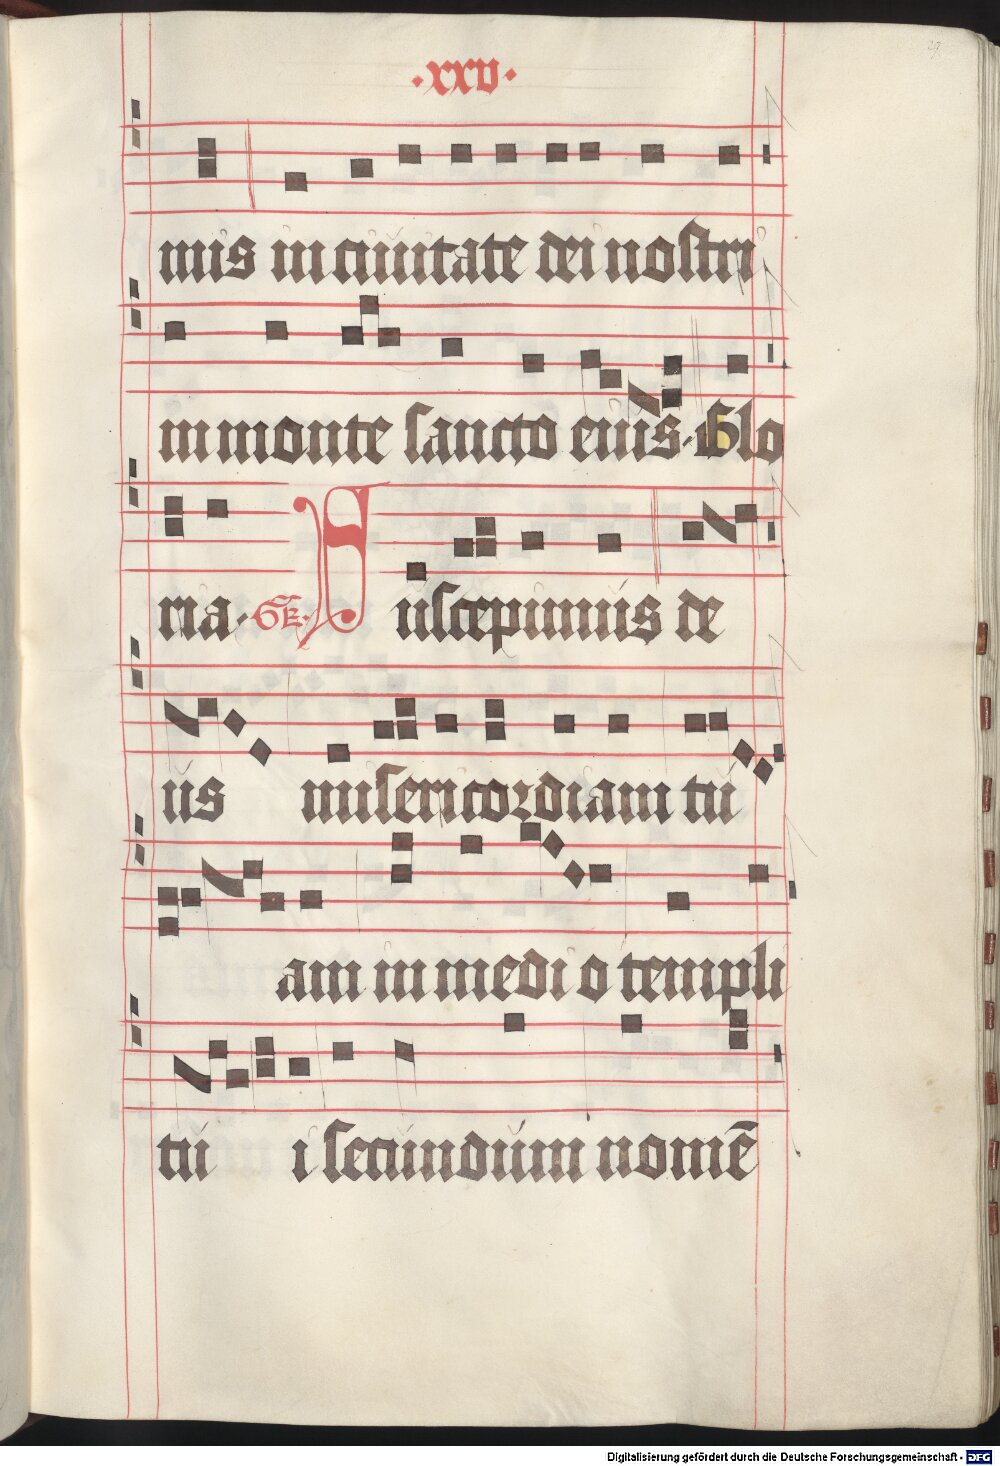 ·xxv·
29
mis in ciuitate dei nostri
in monte sancto eius. Glo
ria. GR. Suscepimus de
us misericordiam tu
am in medio templi
tu i secundum nomē
Digitalisierung gefördert durch die Deutsche Forschungsgemeinschaft - DFG